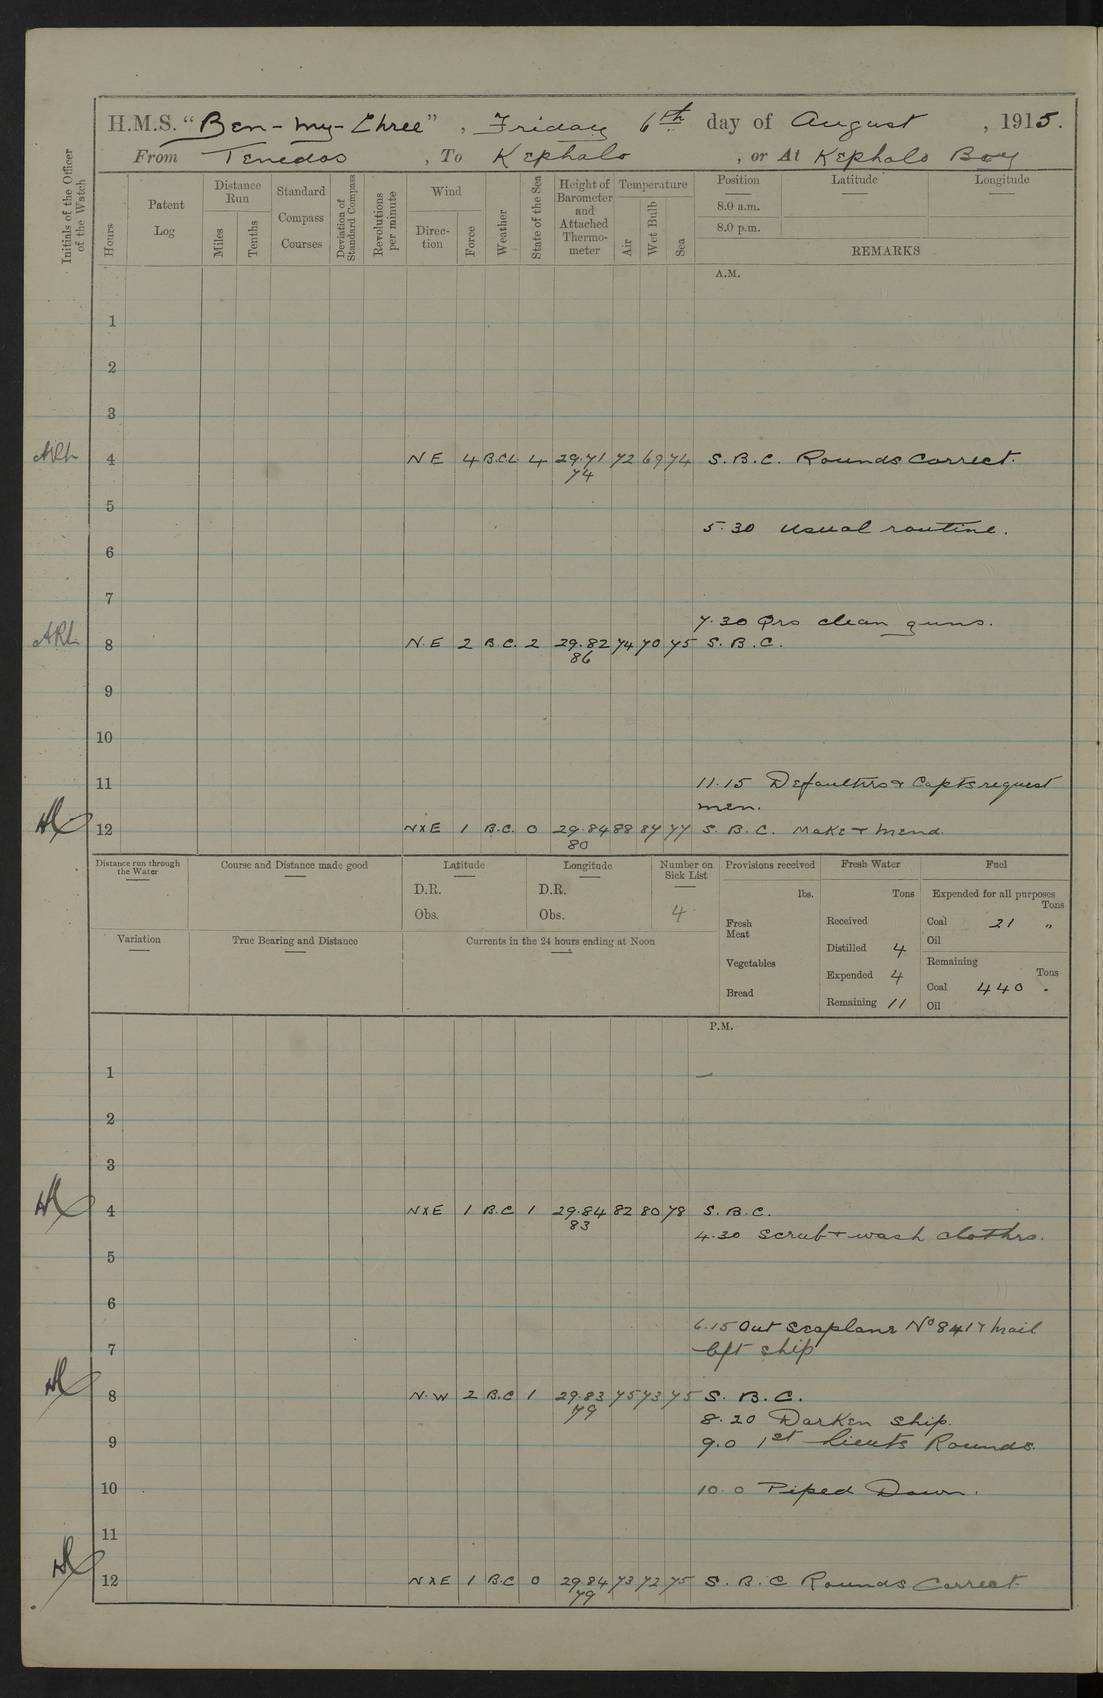 H.M.S. “Ben-my-Chree”, Friday 6th day of August, 1915.
From Tenedos, To Kephalo, or At Kephalo Bay
Initials of the Officer of the Watch
Hours
Patent Log
Distance Run
Miles
Tenths
Standard Compass Courses
Deviation of Standard Compass
Revolutions per minute
Wind
Direction
Force
Weather
State of the Sea
Height of Barometer and Attached Thermometer
Temperature
Air
Wet Bulb
Sea
Position
Latitude
Longitude
8.0 a.m.
8.0 p.m.
REMARKS
A.M.
1
2
3
4 NE 4 B.CL. 4 29.71 72 69 74 S.B.C. Rounds Correct.
74
5
5.30 usual routine.
6
7
7.30 Qrs clean guns.
8 N.E 2 B.C. 2 29.82 74 70 75 S.B.C.
86
9
10
11 11.15 Defaulters & Capts request
men.
12 NXE 1 B.C. 0 29.84 88 84 77 S.B.C. Make & Mend.
80
Distance run through the Water
Course and Distance made good
Latitude
Longitude
Number on Sick List
Provisions received
Fresh Water
Fuel
D.R. D.R.
Obs. Obs. 4
lbs.
Tons
Expended for all purposes
Tons
Fresh Meat
Received
Coal 21 "
Oil
Variation
True Bearing and Distance
Currents in the 24 hours ending at Noon
Distilled 4
Vegetables
Remaining
Tons
Expended 4
Coal 440 .
Bread
Remaining 11
Oil
P.M.
1 —
2
3
4 NXE 1 B.C 1 29.84 82 80 78 S.B.C.
83
4.30 Scrub & wash clothes.
5
6
6.15 Out seaplane No 841 & Mail
7 left ship
8 N.W 2 B.C 1 29.83 75 73 75 S.B.C.
79
8.20 Darken ship.
9 9.0 1st Lieuts Rounds.
10 10.0 Piped Down.
11
12 NXE 1 B.C 0 29.84 73 72 75 S.B.C Rounds Correct.
79